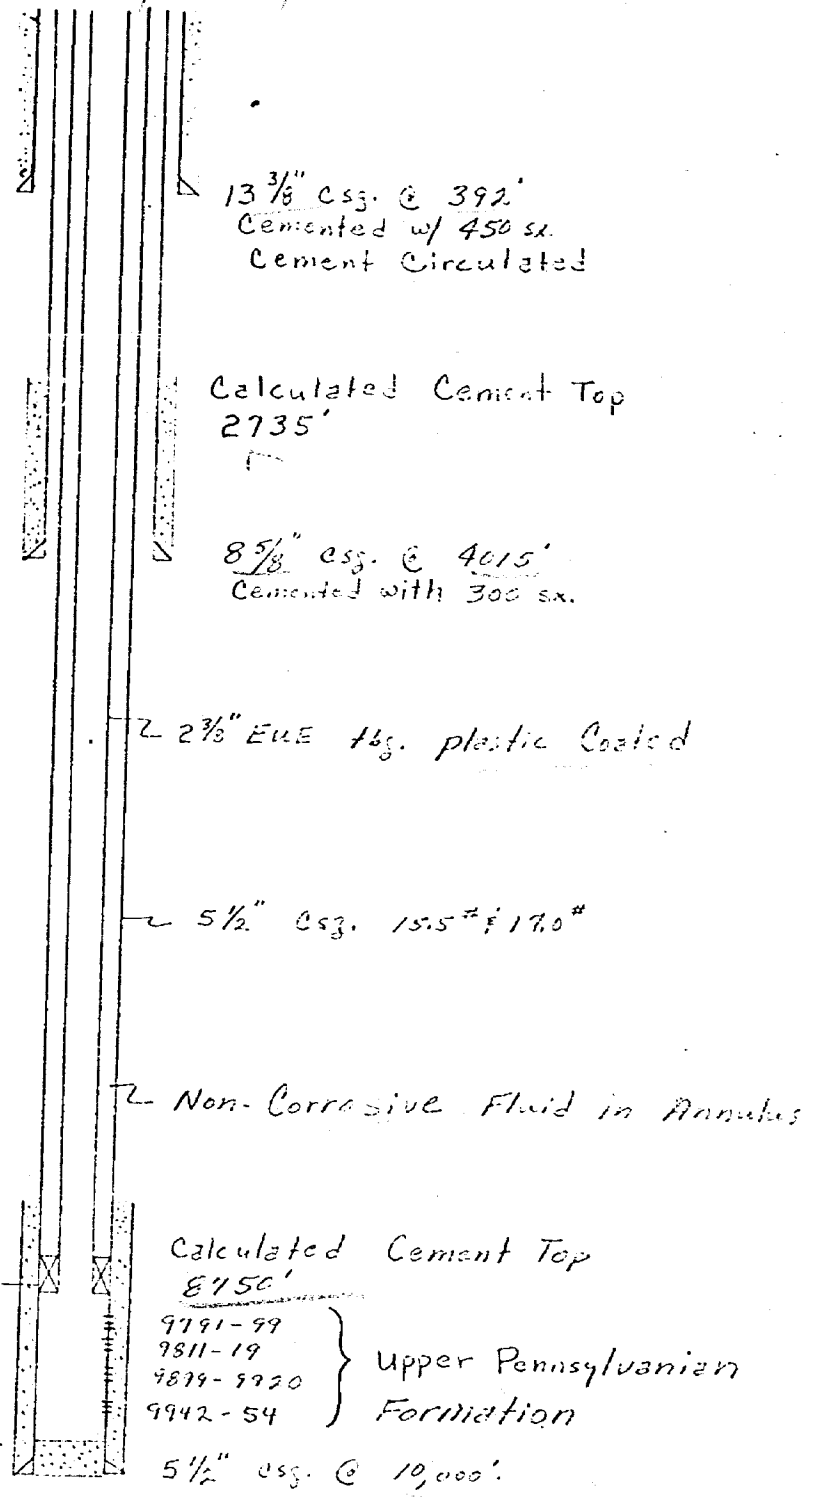 13 3/8" Csg. @ 392'
Cemented w/ 450 sx.
Cement Circulated
Calculated Cement Top
2735'
8 5/8" csg. @ 4015'
Cemented with 300 sx.
2 3/8" EUE tbg. plastic Coated
5 1/2" Csg. 15.5# & 17.0#
Non-Corrosive Fluid in Annulus
Calculated Cement Top
8750'
9791-99
9811-19
9942-54
Upper Pennsylvanian
Formation
5 1/2" csg. @ 10,000'.